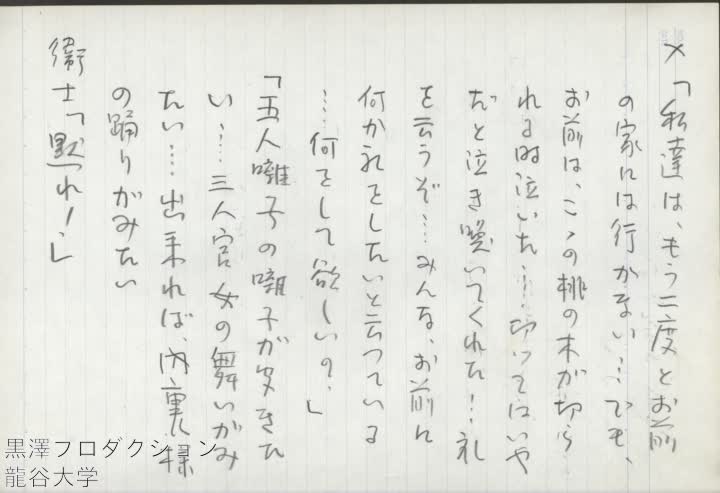 ×「私達は、もう二度とお前
の家には行かない……でも、
お前は、この桃の木が切ら
れる時泣いた……切ってはいや
だと泣き喚いてくれた……礼
を云うぞ……みんな、お前に
何か礼をしたいと云っている
……何をして欲しいの?」
「五人囃子の囃子がききた
い……三人官女の舞いがみ
たい……出来れば、内裏様
の踊りがみたい
衛士「黙れ!」
黒澤プロダクション
龍谷大学